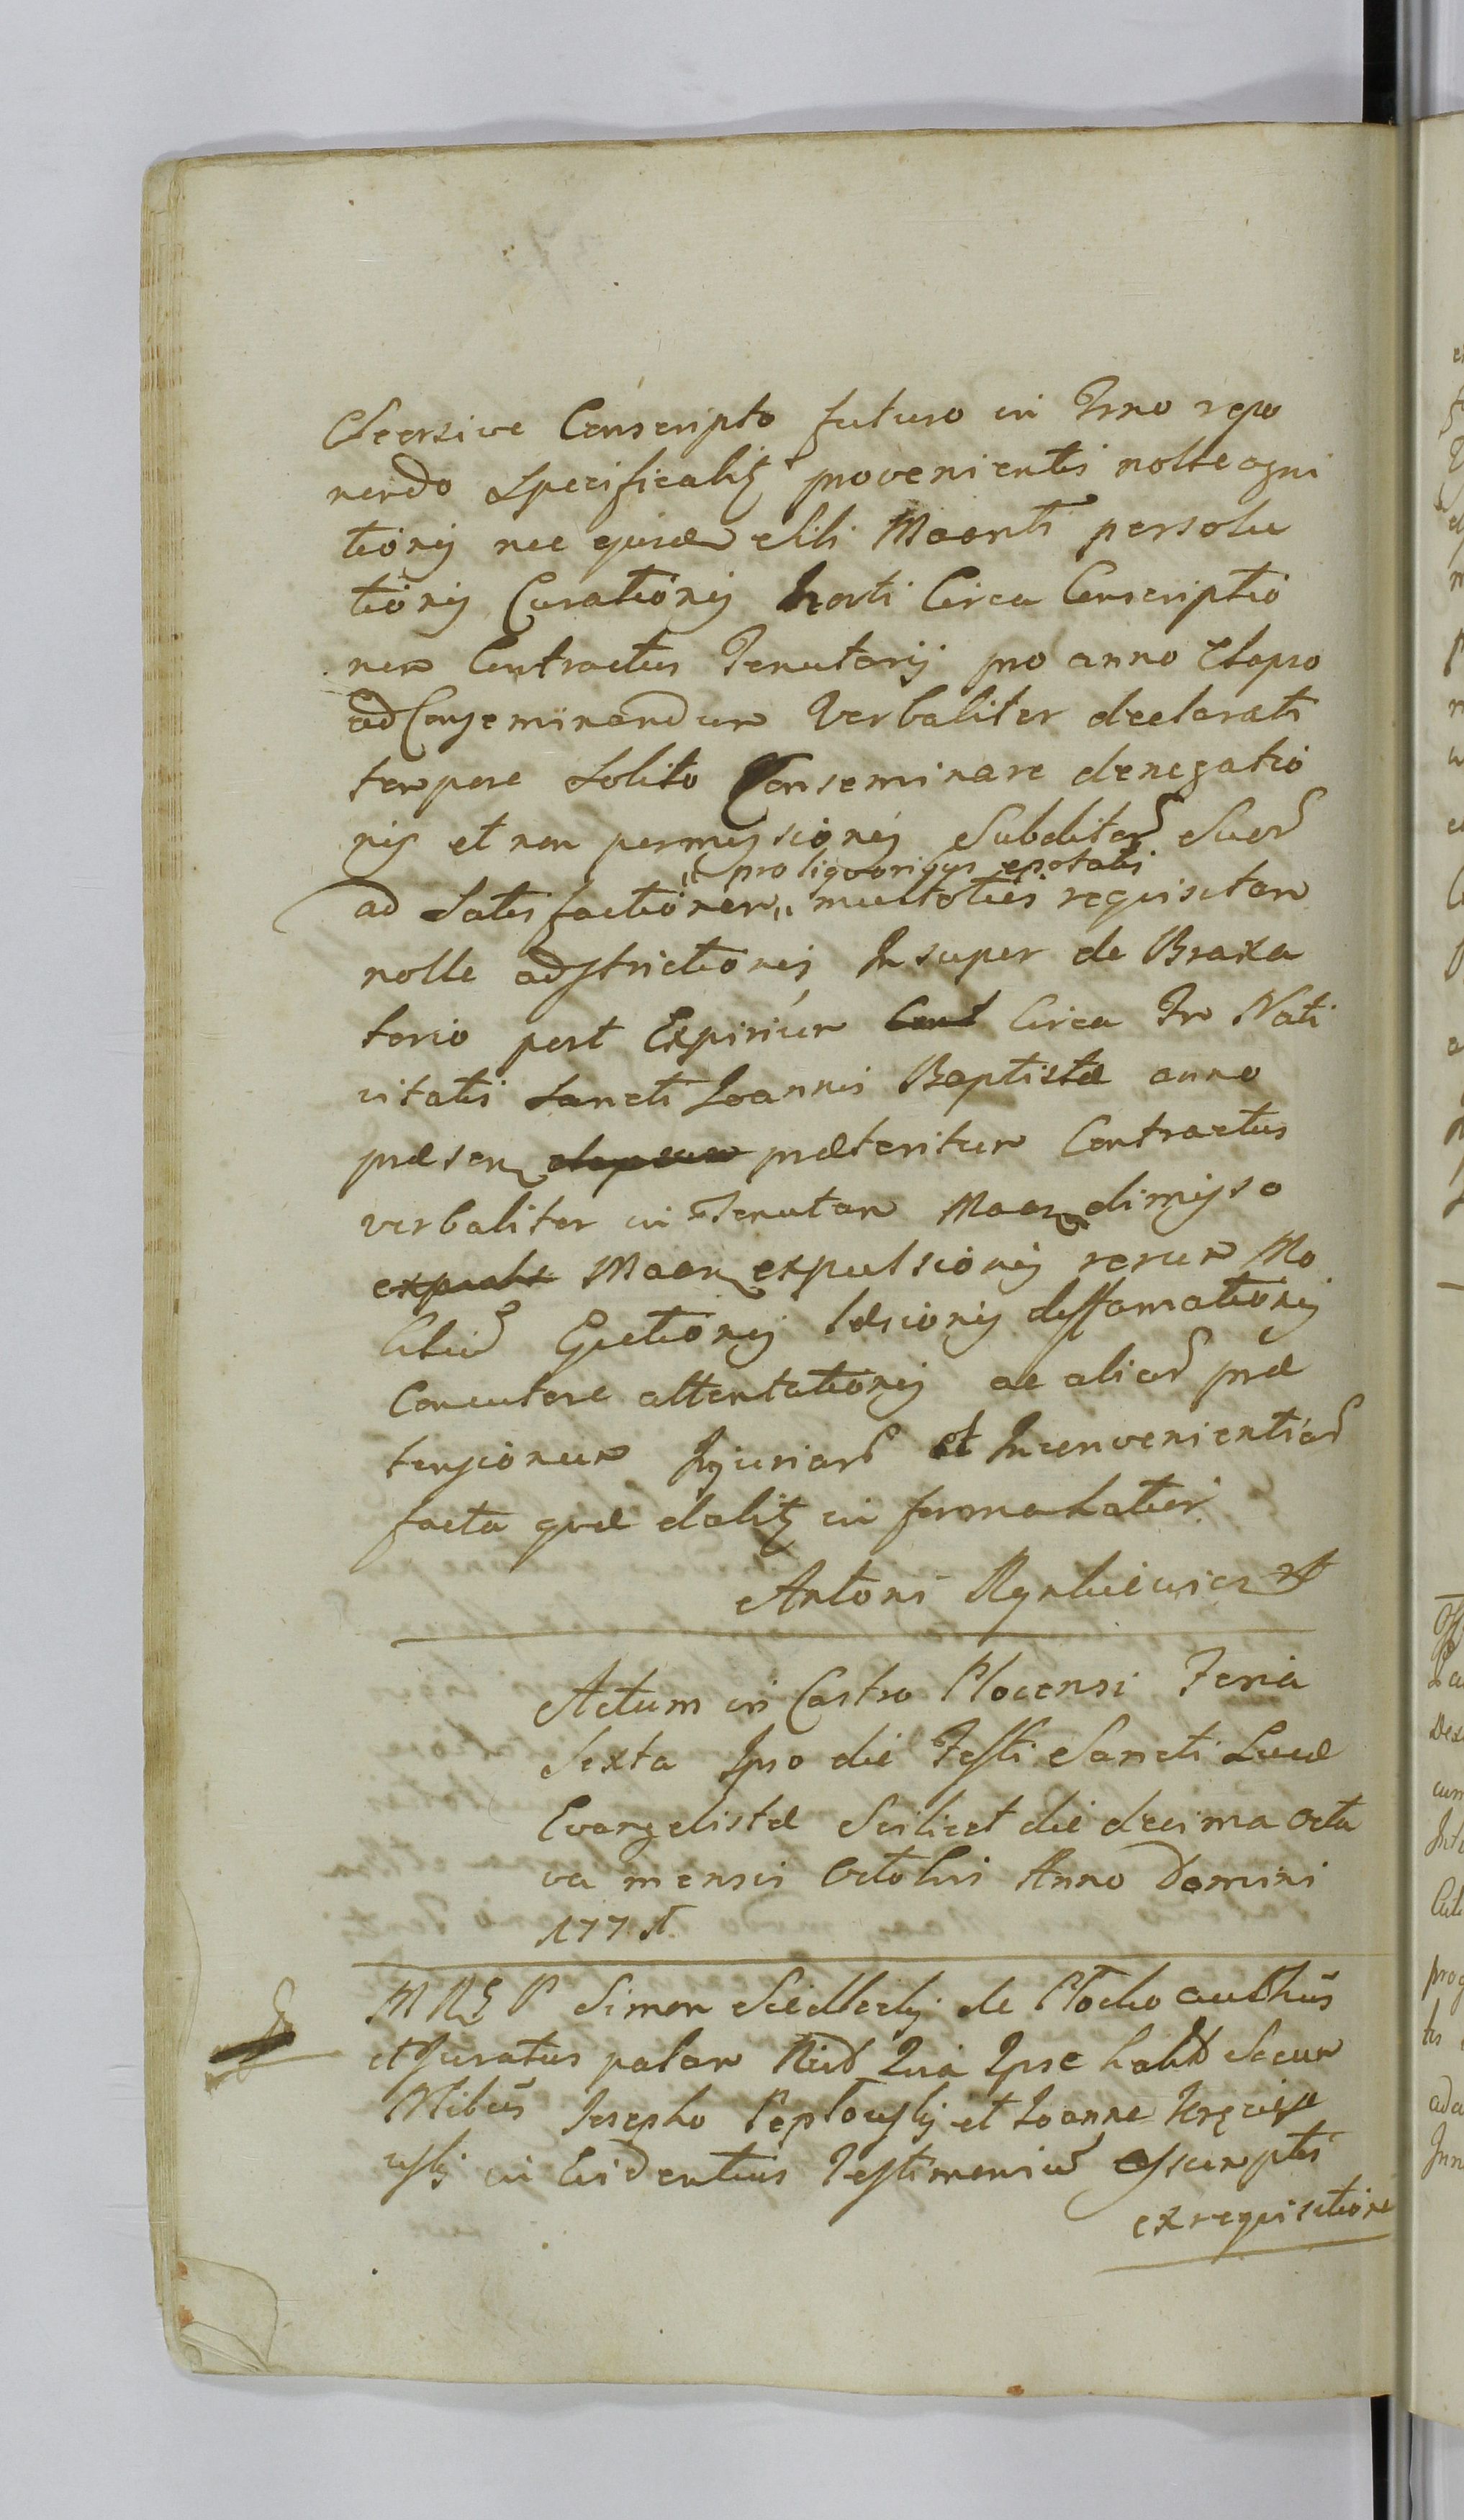 Cursive Conscripto futuro in Trno repo
nendo Specificalitz provenientis nolle agni
tionis nec ejusd Sibi Maenti persolu
tionis Curationis horti Circa Conscriptio
nem Contractus Tenutarij pro anno Elapso
ad Conseminandum Verbaliter declarati
tempore Solito Conseminare denegatio
nis et non permissionis Subditor Suor
" pro liquoribus epotatis
ad Satisfactionem " multoties requisitam
nolle adstrictionis Insuper de Braxa
torio post Expirium Cont Circa Fm Nati
vitatis Sancti Joannis Baptistæ anno
præsen elapsum præteritum Contractus
verbaliter in Tenutam Maen dimisso
expuls Maen expulsionis rerum Mo
biliu Ejectionis læsionis diffamationis
Concutere attentationis ac aliar præ
tensionum Injuriar et Inconvenientiar
facta quæ dalitz in forma latiori
Antoni Rynkiewicz
Actum in Castro Plocensi Feria
Sexta Ipso die Festi Sancti Lucæ
Evangelistæ Scilicet die decima octa
va mensis Octobris Anno Domini
177
M R E P Simon Siedlecky de Płocko authus
et Juratus palam Quia Ipse habit Secum
Nlibus Josepho Peplowsky et Joanne
wsky in Evidentius Testimoniu assumptis
ex requisitione